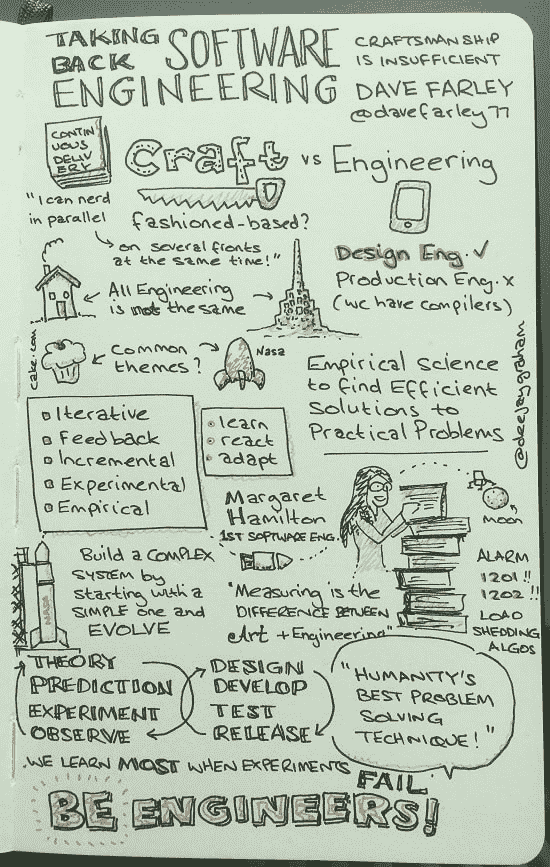 TAKING
BACK
SOFTWARE
ENGINEERING
CRAFTSMANSHIP
IS INSUFFICIENT
DAVE FARLEY
@davefarley77
CONTIN
UOUS
DELIV
ERY
Craft vs Engineering
"I can nerd
in parallel
on several fronts
at the same time!"
fashioned-based?
Design Eng. ✓
Production Eng. x
(we have compilers)
All Engineering
is not the same
cake.com
common
themes?
Nasa
Empirical science
to find Efficient
Solutions to
Practical Problems
@deejaygraham
Iterative
Feedback
Incremental
Experimental
Empirical
learn
react
adapt
Margaret
Hamilton
1ST SOFTWARE ENG.
Moon
ALARM
1201 !!
1202 !!
LOAD
SHEDDING
ALGOS
NASA
Build a COMPLEX
SYSTEM by
starting with a
SIMPLE one and
EVOLVE
"Measuring is the
DIFFERENCE BETWEEN
Art + Engineering"
THEORY
PREDICTION
EXPERIMENT
OBSERVE
DESIGN
DEVELOP
TEST
RELEASE
"HUMANITY'S
BEST PROBLEM
SOLVING
TECHNIQUE!"
WE LEARN MOST WHEN EXPERIMENTS FAIL.
BE ENGINEERS!